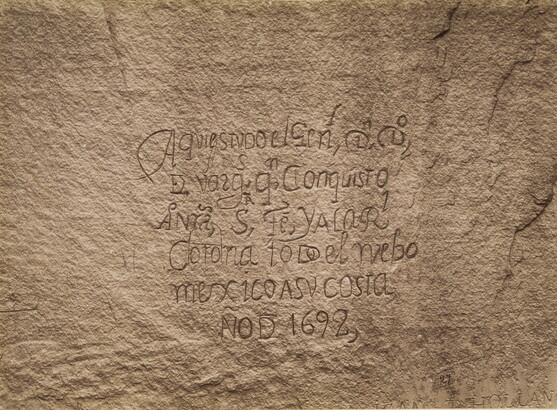 Aqui estudo el Genl, Dn. Do,
D. Vargs, qn, Conquisto
a Nra, S, Fe, YALAR,
Corona todo el nuebo
mexico ASU COSTA,
ÑO D 1692,